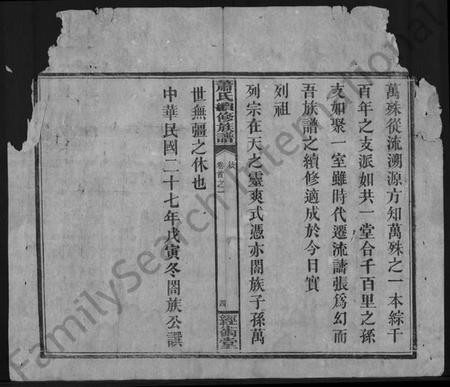 萬殊從流溯源方知萬殊之一本綜千
百年之支派如共一堂合千百里之孫
支如聚一室雖時代遷流譸張為幻而
吾族譜之續修適成於今日實
列祖
列宗在天之靈爽式憑亦闔族子孫萬
蕭氏續修族譜
卷首之一
四
經術堂
世無疆之休也
中華民國二十七年戊寅冬闔族公譔
FamilySearch International